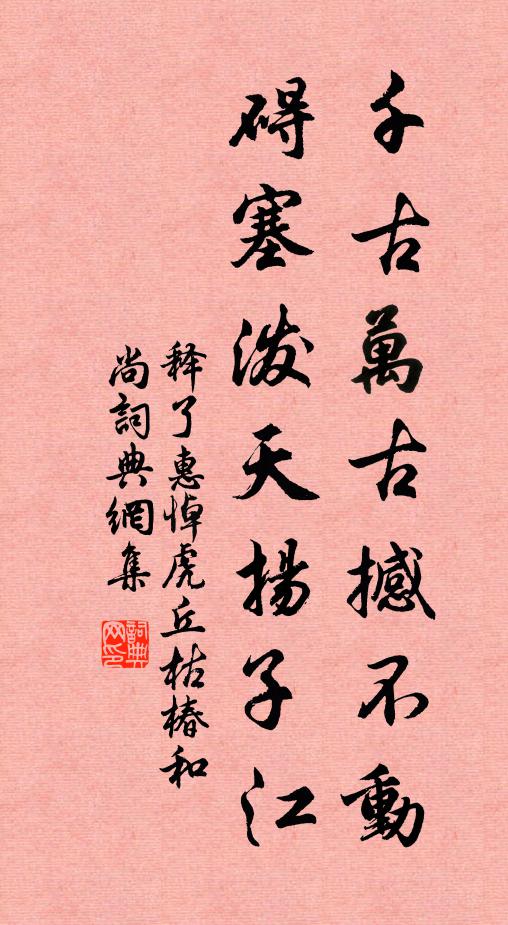 千古萬古撼不動
碍塞泼天揚子江
释了惠悼虎丘枯椿和
尚詞典網集
詞典
网印